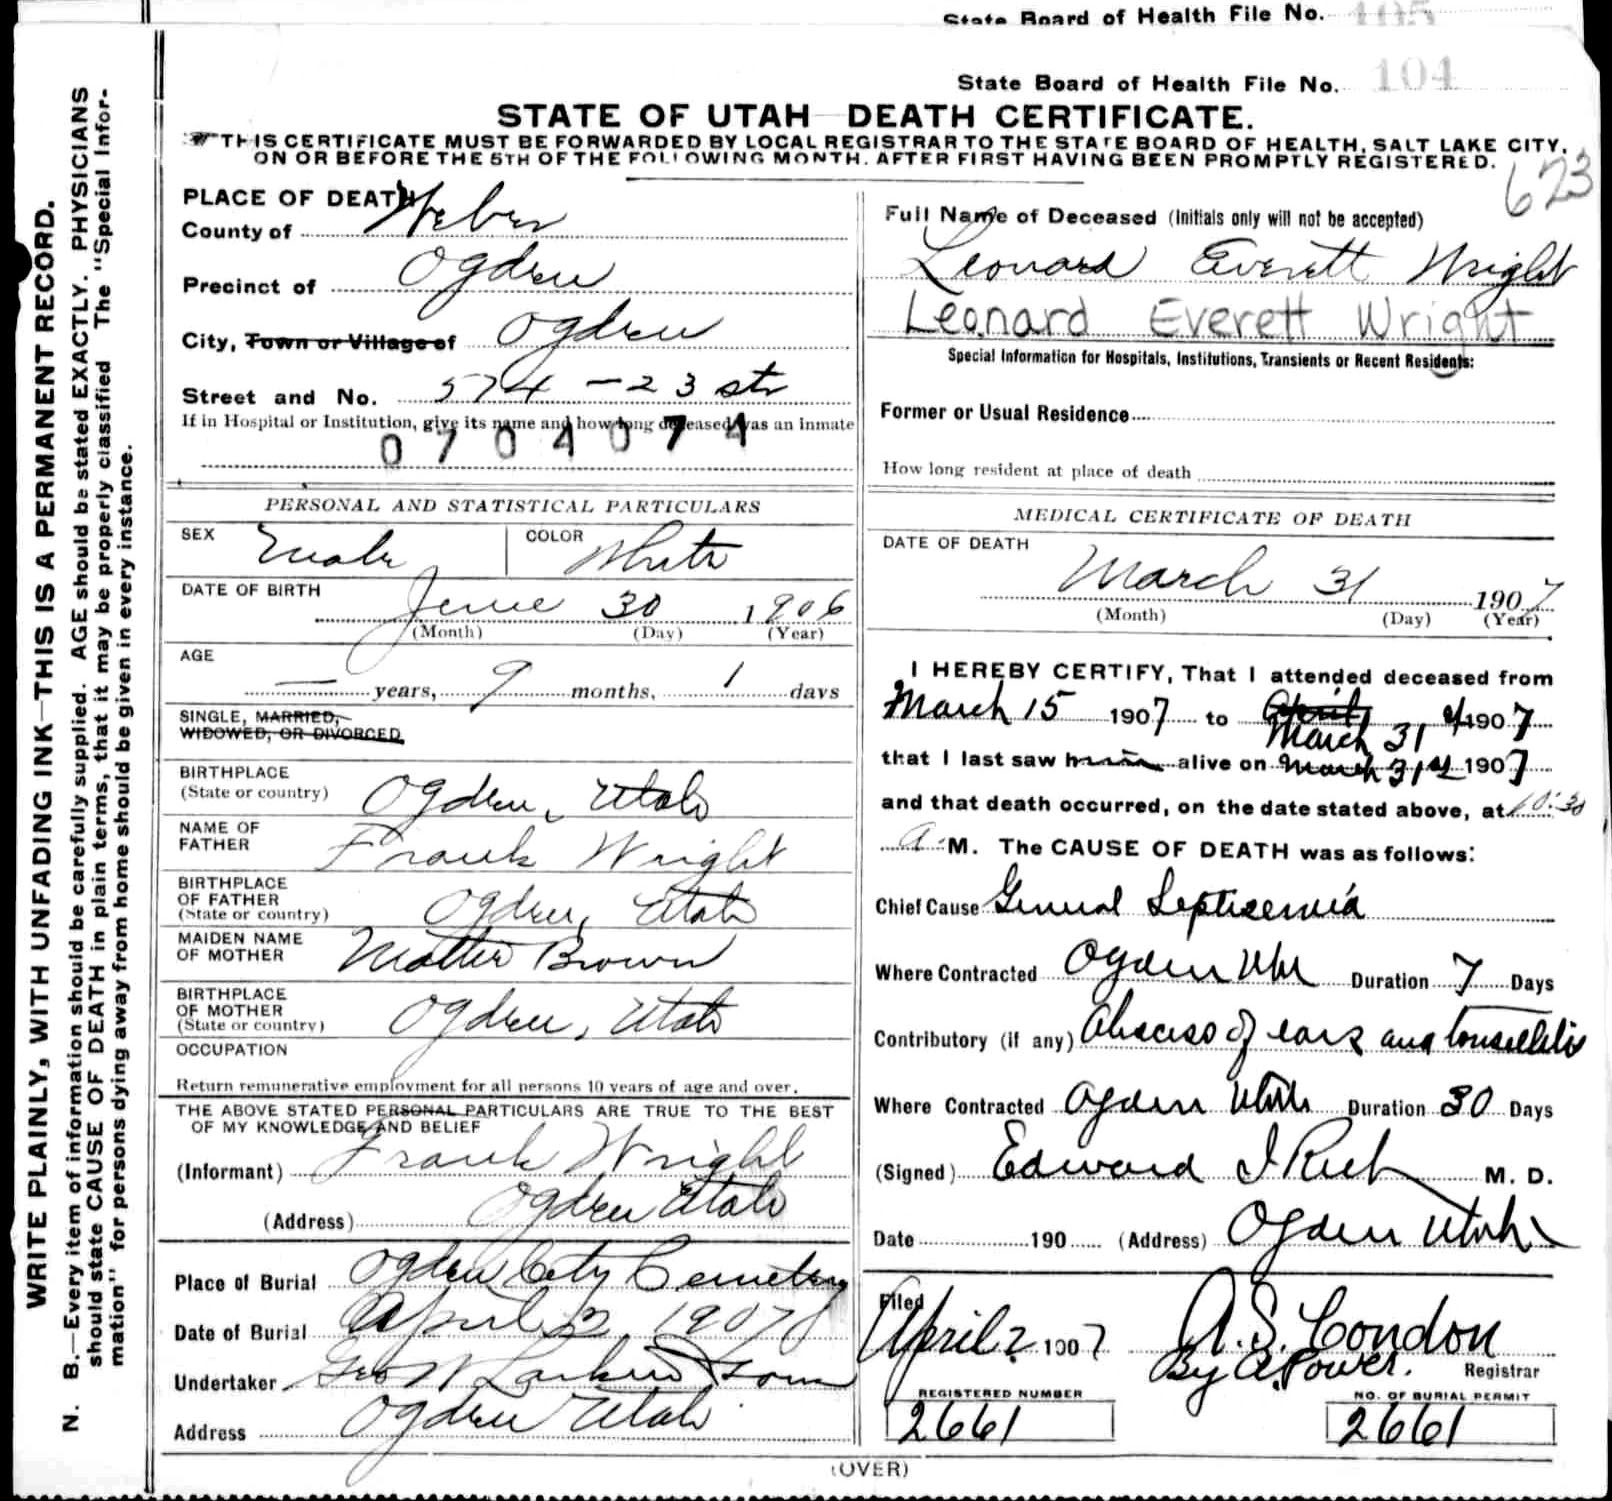 State Board of Health File No. 105
State Board of Health File No. 104
STATE OF UTAH DEATH CERTIFICATE.
THIS CERTIFICATE MUST BE FORWARDED BY LOCAL REGISTRAR TO THE STATE BOARD OF HEALTH, SALT LAKE CITY,
ON OR BEFORE THE 5TH OF THE FOLLOWING MONTH, AFTER FIRST HAVING BEEN PROMPTLY REGISTERED.
623
WRITE PLAINLY, WITH UNFADING INK—THIS IS A PERMANENT RECORD.
N. B.—Every item of information should be carefully supplied. AGE should be stated EXACTLY. PHYSICIANS
should state CAUSE OF DEATH in plain terms, that it may be properly classified The "Special Infor-
mation" for persons dying away from home should be given in every instance.
PLACE OF DEATH
County of Weber
Precinct of Ogden
City, Town or Village of Ogden
Street and No. 574 - 23 str
If in Hospital or Institution, give its name and how long deceased was an inmate
0704074
PERSONAL AND STATISTICAL PARTICULARS
SEX Male COLOR White
DATE OF BIRTH June 30 1906
(Month) (Day) (Year)
AGE
— years, 9 months, 1 days
SINGLE, MARRIED,
WIDOWED, OR DIVORCED
BIRTHPLACE
(State or country) Ogden, Utah
NAME OF
FATHER Frank Wright
BIRTHPLACE
OF FATHER
(State or country) Ogden, Utah
MAIDEN NAME
OF MOTHER Brown
BIRTHPLACE
OF MOTHER
(State or country) Ogden, Utah
OCCUPATION
Return remunerative employment for all persons 10 years of age and over.
THE ABOVE STATED PERSONAL PARTICULARS ARE TRUE TO THE BEST
OF MY KNOWLEDGE AND BELIEF
(Informant) Frank Wright
(Address) Ogden Utah
Place of Burial Ogden City Cemetery
Date of Burial April 2, 1907
Undertaker Geo W Larkin & Sons
Address Ogden Utah
Full Name of Deceased (Initials only will not be accepted)
Leonard Everett Wright
Leonard Everett Wright
Special Information for Hospitals, Institutions, Transients or Recent Residents:
Former or Usual Residence
How long resident at place of death
MEDICAL CERTIFICATE OF DEATH
DATE OF DEATH
March 31 1907
(Month) (Day) (Year)
I HEREBY CERTIFY, That I attended deceased from
March 15 1907 to March 31 1907
that I last saw him alive on March 31st 1907
and that death occurred, on the date stated above, at 10:30
a M. The CAUSE OF DEATH was as follows:
Chief Cause General Septicemia
Where Contracted Ogden Utah Duration 7 Days
Contributory (if any) Abscess of ears and tonsellitis
Where Contracted Ogden Utah Duration 30 Days
(Signed) Edward I Rich M. D.
Date 190 (Address) Ogden Utah
Filed
April 2 1907 A. S. Condon
By A. Power. Registrar
REGISTERED NUMBER NO. OF BURIAL PERMIT
2661 2661
(OVER)